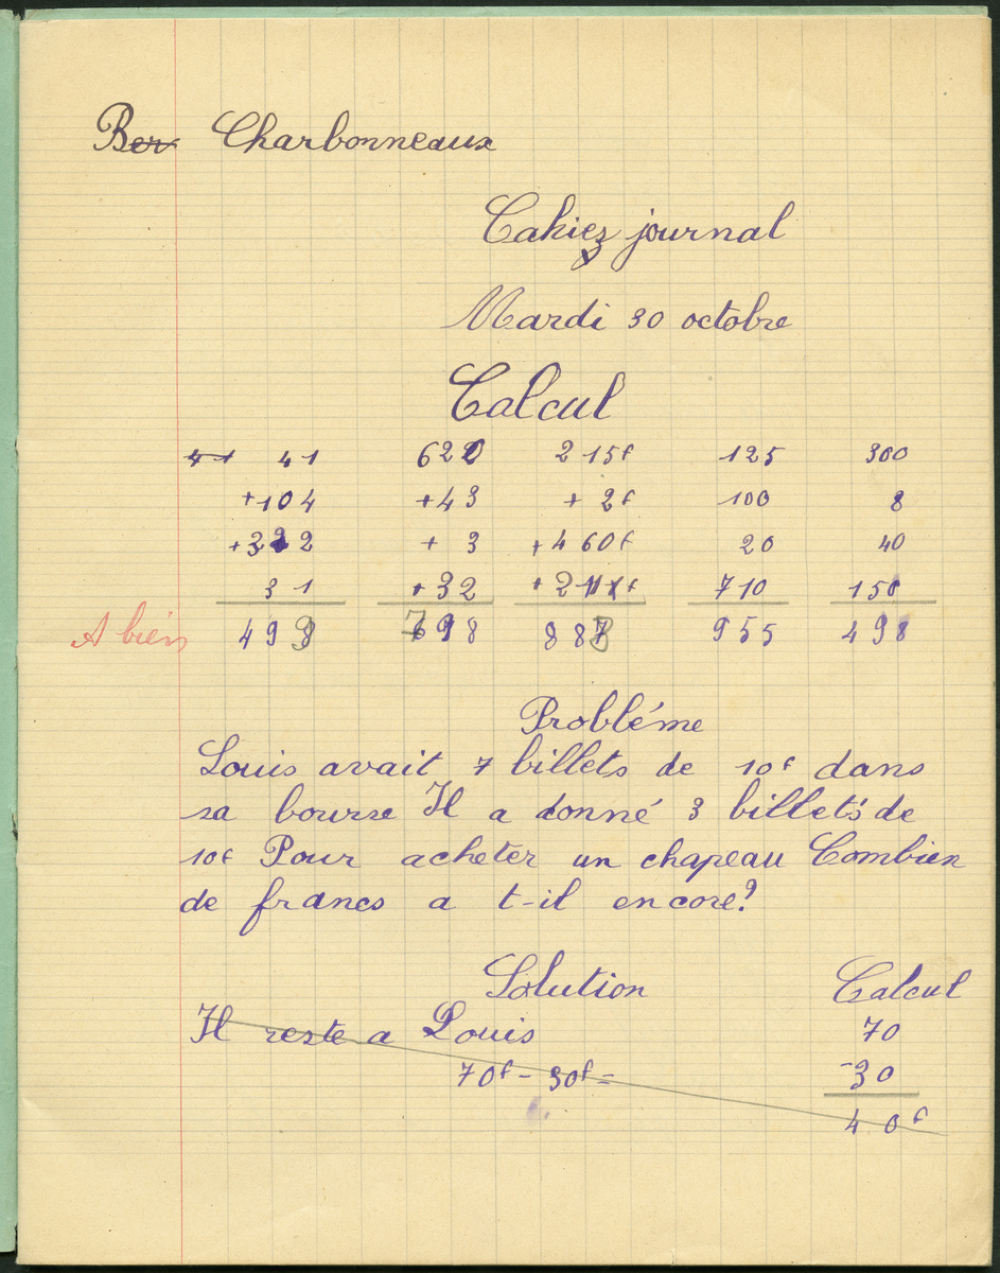 Ber Charbonneaux
Cahier journal
Mardi 30 octobre
Calcul
41 41 620 215f 125 300
+104 +43 + 2f 100 8
+322 + 3 +460f 20 40
31 +32 +211f 710 150
A bien 498 698 888 955 498
Probléme
Louis avait 7 billets de 10f dans
sa bourse Il a donné 3 billets de
10f Pour acheter un chapeau Combien
de francs a t-il encore?
Solution Calcul
Il reste a Louis 70
70f - 30f = -30
40f